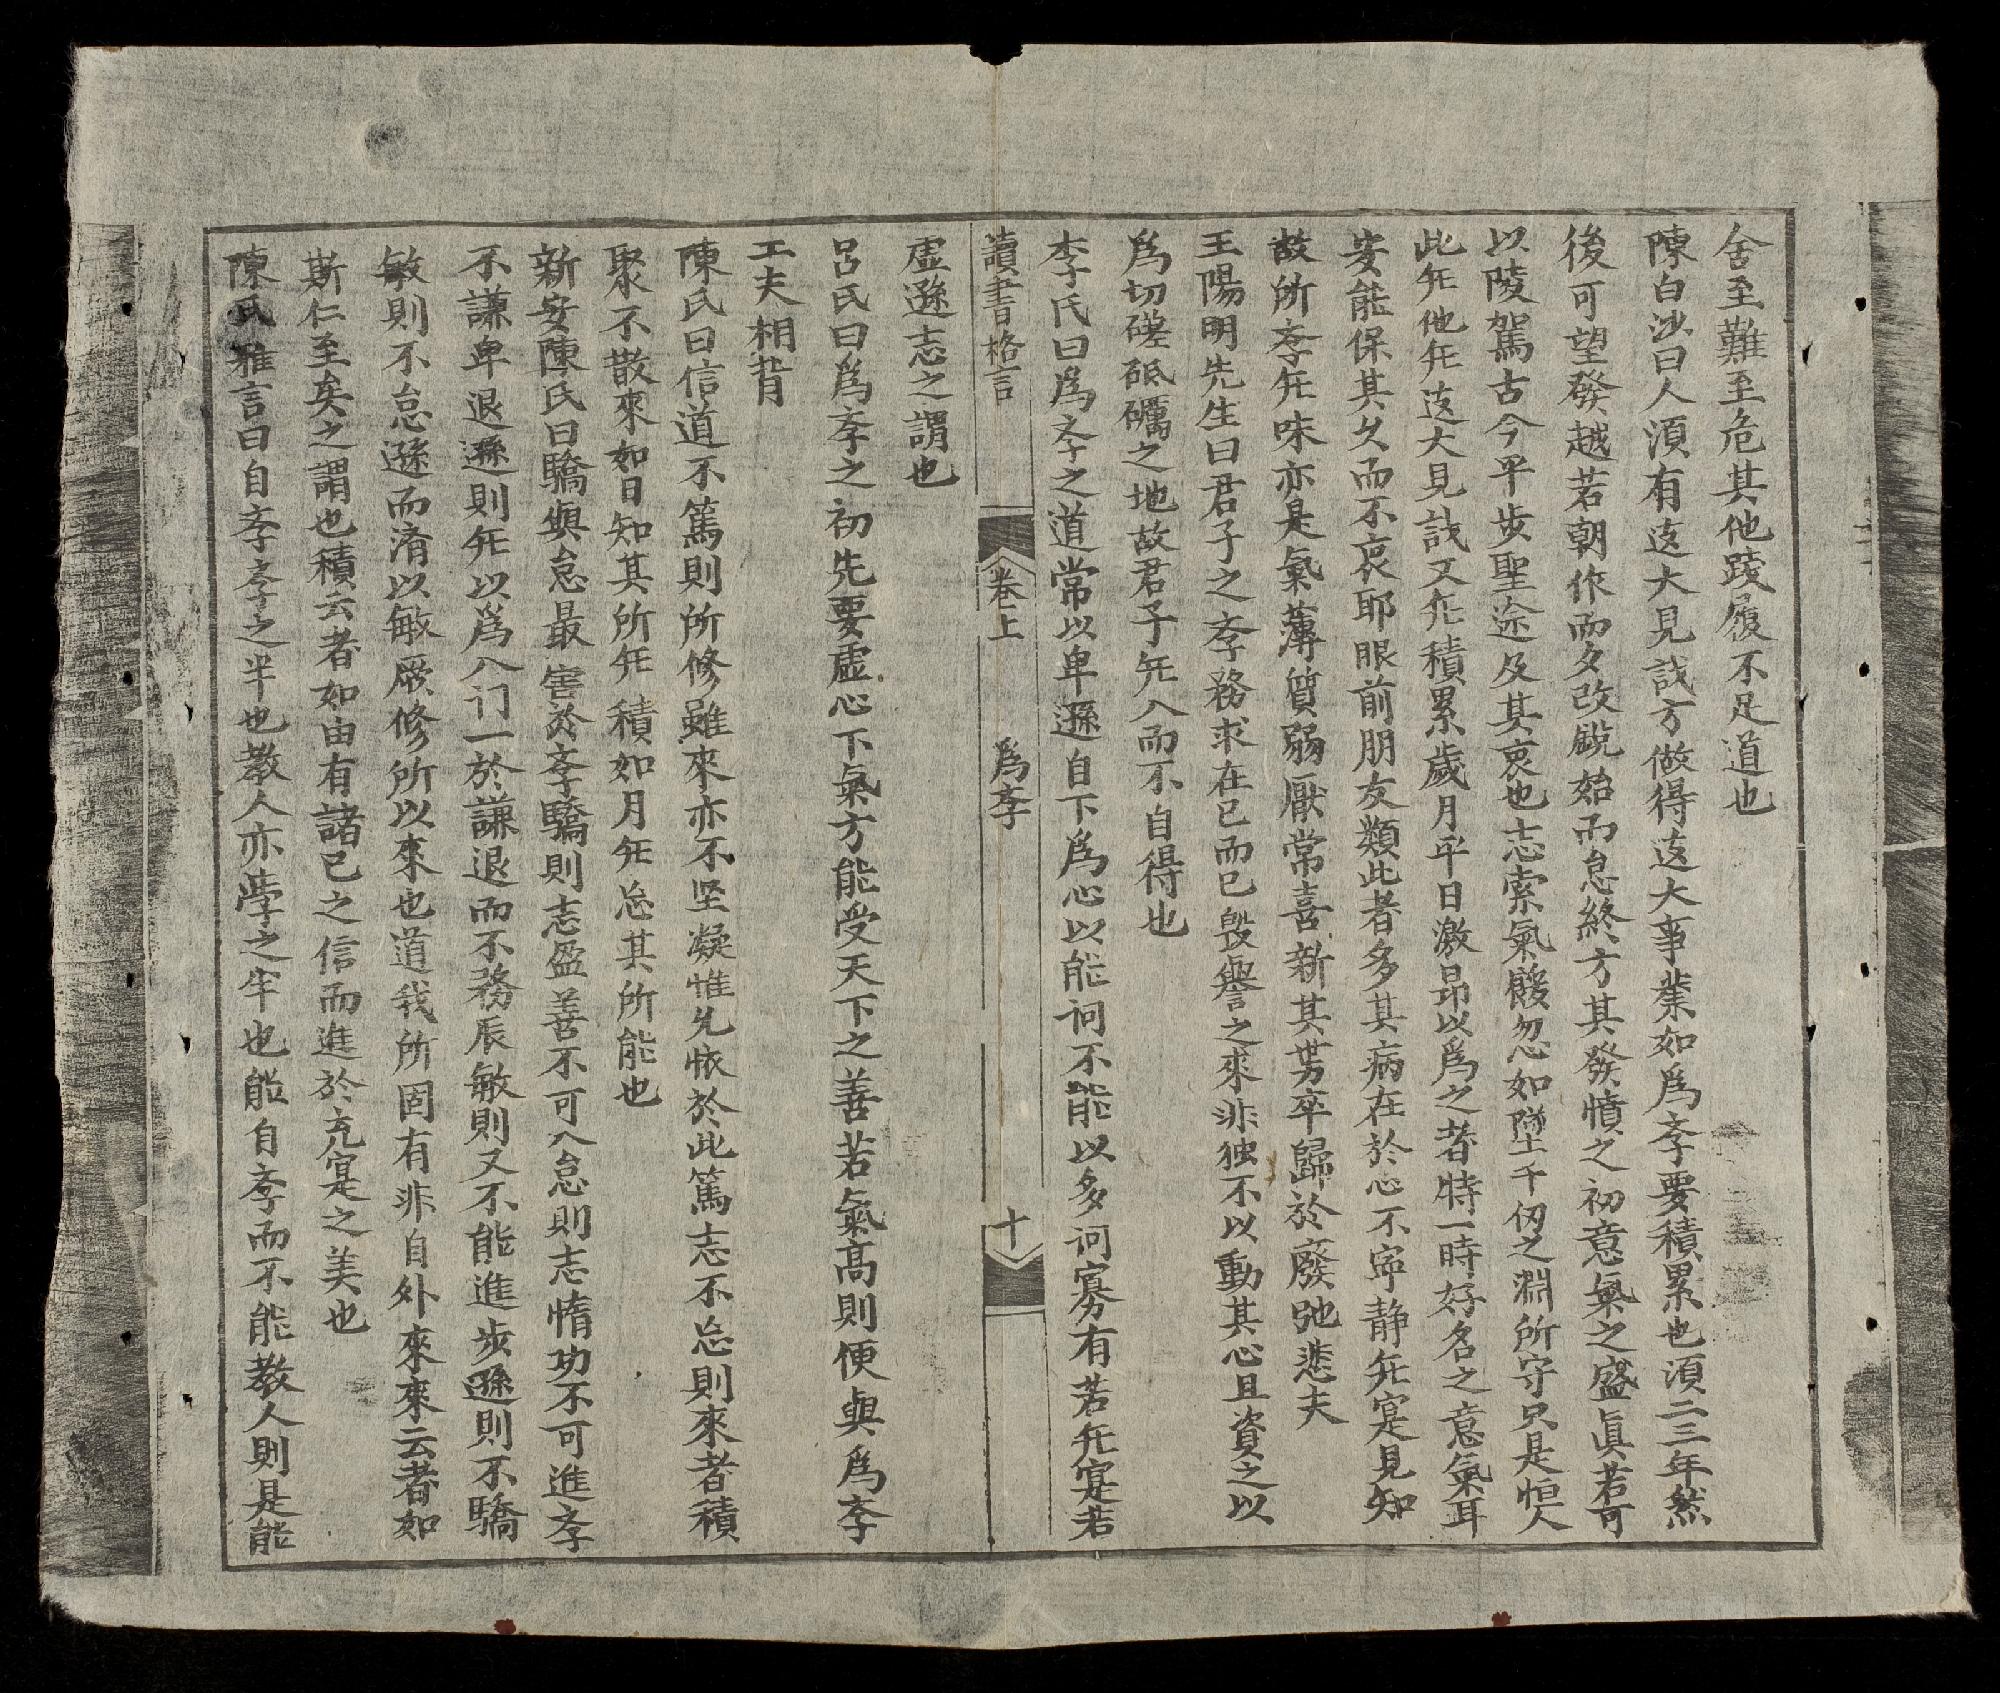 舍至難至危其他踐履不足道也
陳白沙曰人湏有这大見識方做得这大事業如爲斈要積累也湏二三年然
後可望發越若朝作而夕改銳始而怠終方其發憤之初意氣之盛眞若可
以陵駕古今平步聖途及其衰也志索氣餒忽如墜千仞之淵所守只是恒人
此无他无这大見識又无積累歲月平日激昻以爲之者特一時好名之意氣耳
安能保其久而不衰耶眼前朋友類此者多其病在於心不寜静无寔見知
故所斈无味亦是氣薄質弱厭常喜新其势卒歸於廢弛悲夫
王陽明先生曰君子之斈務求在已而已毁譽之來非独不以動其心且資之以
爲切磋砥礪之地故君子无入而不自得也
李氏曰爲斈之道常以卑遜自下爲心以能问不能以多问寡有若无寔若
讀書格言 卷上 爲斈 十
虚遜志之謂也
呂氏曰爲斈之初先要虚心下氣方能受天下之善若氣髙則便與爲斈
工夫相背
陳氏曰信道不篤則所修雖來亦不坚凝惟允懐於此篤志不忘則來者積
聚不散來如日知其所无積如月无忘其所能也
新安陳氏曰驕與怠最害於斈驕則志盈善不可入怠則志惰功不可進斈
不謙卑退遜則无以爲入门一於謙退而不務辰敏則又不能進步遜則不驕
敏則不怠遜而濟以敏厥修所以來也道我所固有非自外來來云者如
斯仁至矣之謂也積云者如由有諸已之信而進於充寔之美也
陳氏雅言曰自斈斈之半也教人亦斈之半也能自斈而不能教人則是能